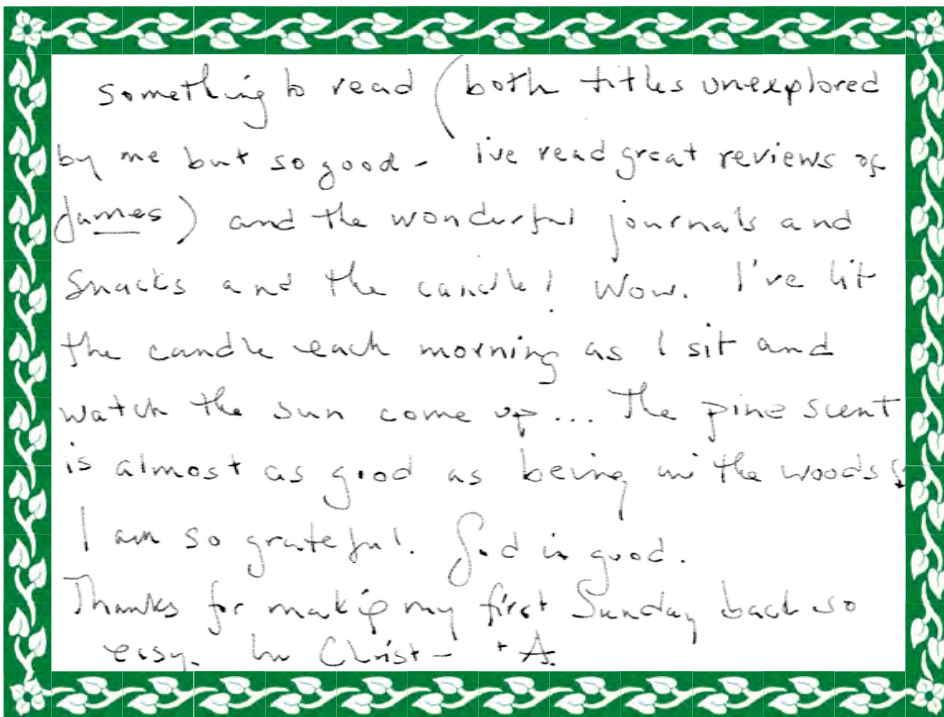 something to read (both titles unexplored
by me but so good - ive read great reviews of
James) and the wonderful journals and
snacks and the candle! Wow. I've lit
the candle each morning as I sit and
watch the sun come up... The pine scent
is almost as good as being in the woods
I am so grateful. God is good.
Thanks for making my first Sunday back so
easy. In Christ - +A.